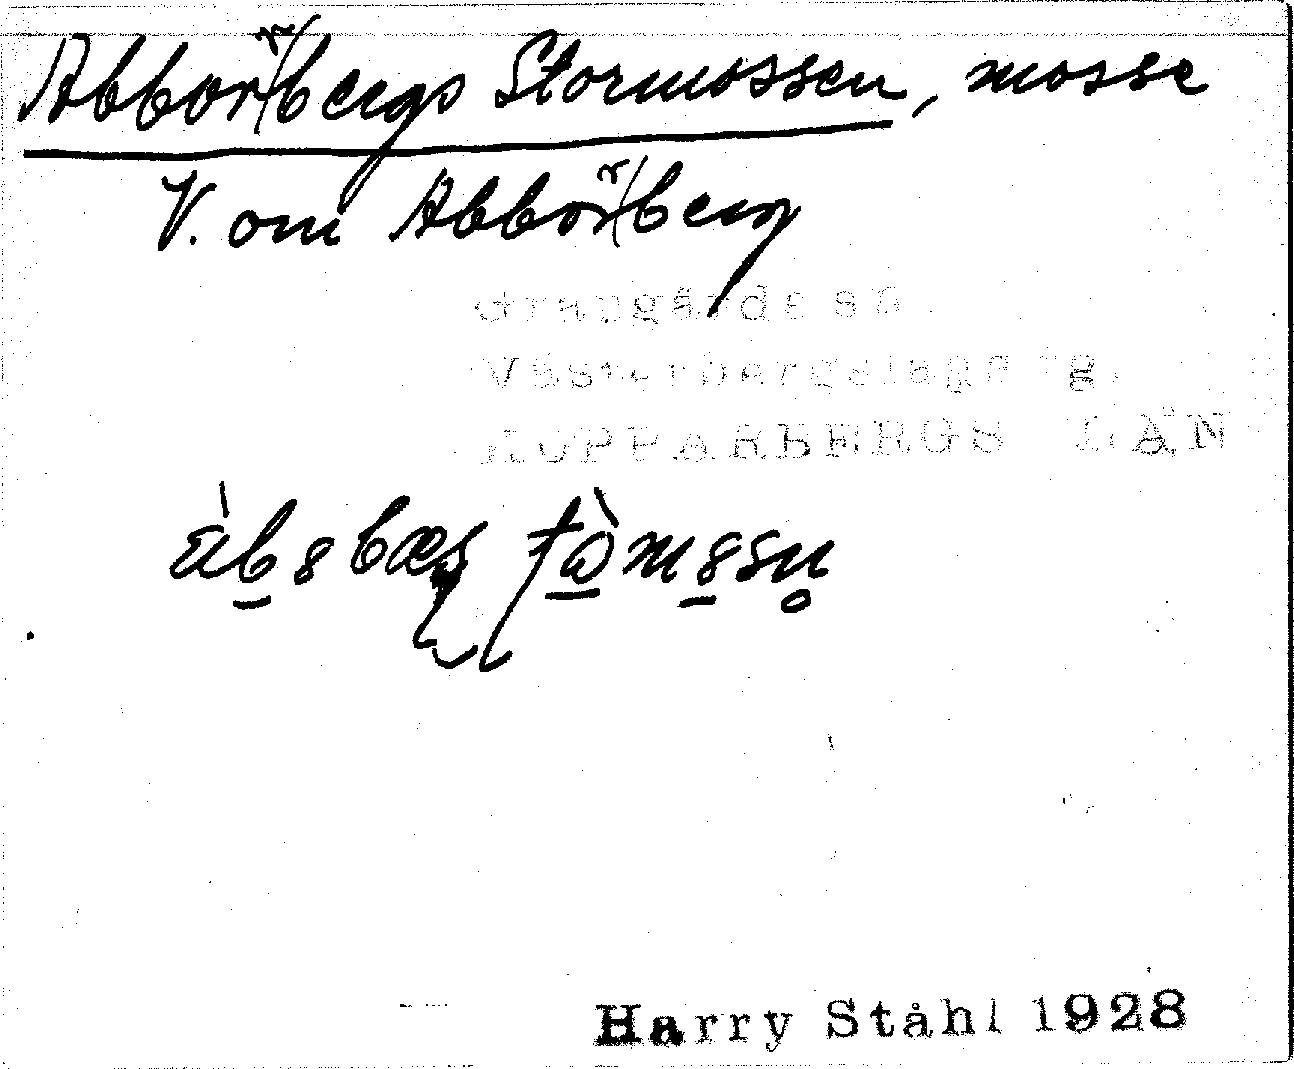 Abborrbergs Stormossen, mosse
V. om Abborrberg
Grangärde sn
Västerbergslags tg.
KOPPARBERGS LÄN
Harry Ståhl 1928